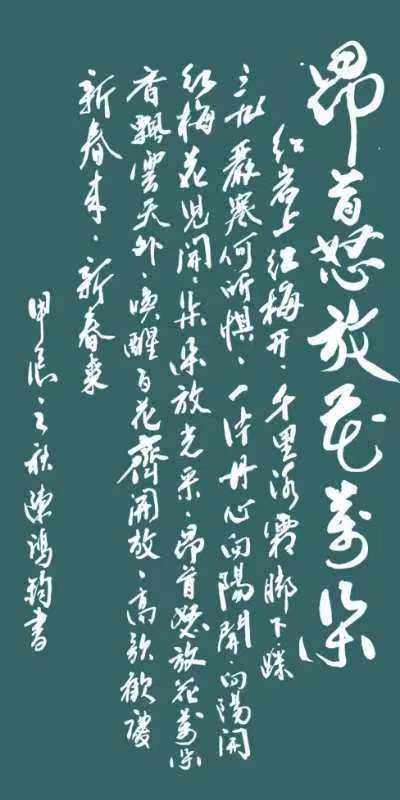 昂首怒放花萬朵
红岩上红梅开、千里冰霜脚下踩
三九嚴寒何所惧、一片丹心向陽開、向陽開
红梅花児開、朵朵放光采、昂首怒放花萬朵
香飄雲天外、唤醒百花齊開放、高歌歡慶
新春来、新春來
甲辰之秋陳鴻鈞書